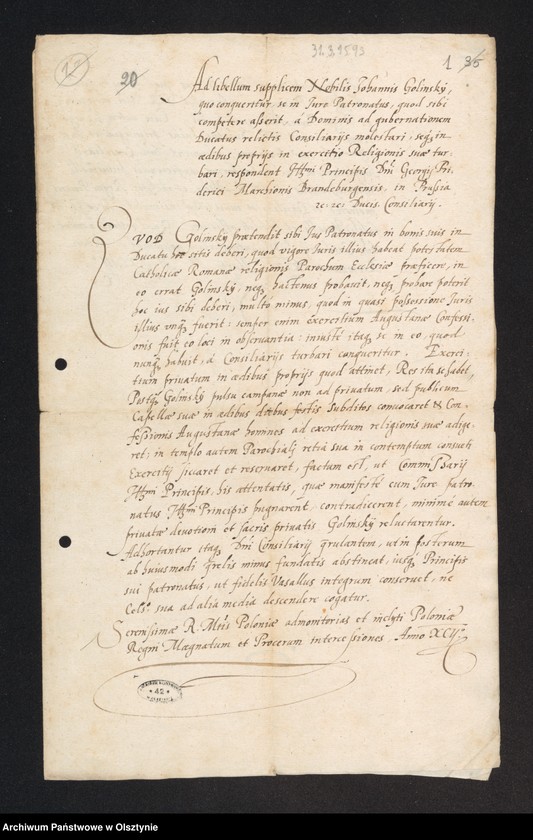 31.3.1593
12
20
1 36
Ad libellum supplicem Nobilis Johannis Golinskÿ,
quo conqueritur, se in Jure Patronatus, quod sibi
competere asserit, à Dominis ad gubernationem
Ducatus relictis Consiliarijs molestari, seq; in
ædibus proprijs in exercitio Religionis suæ tur:
bari, respondent Illmi Principis Dni Georgij Fri:
derici Marchionis Brandeburgensis, in Prussia
Ducis, Consiliarij.
QVOD Golinskÿ prætendit sibi Jus Patronatus in bonis suis in
Ducatu hoc sitis deberi, quod vigore Juris illius habeat potestatem
Catholicæ Romanæ religionis Parochum Ecclesiæ præficere, in
eo errat Golinskÿ, neq; hactenus probavit, neq; probare poterit
hoc ius sibi deberi, multo minus, quod in quasi possessione Juris
illius unq; fuerit: semper enim exercitium Augustanæ Confessi:
onis fuit eo loci in observantia: iniuste itaq; se in eo, quod
nunq; habuit, à Consiliarijs turbari conqueritur. Exerci:
tium privatum in ædibus proprijs quod attinet, Res ita se habet,
Postq; Golinskÿ pulsu campanæ non ad privatum, sed publicum
Capellæ suæ in ædibus diebus festis Subditos convocaret & Con:
fessionis Augustanæ homines ad exercitium religionis suæ adige:
ret, in templo autem Parochiali retia sua in contemptum consueti
Exercitij siccaret et reservaret, factum est, ut Commissarij
Illmi Principis, his attentatis, quæ manifeste cum Jure patro:
natus Illmi Principis pugnarent, contradicerent, minimè autem
privatæ devotioni et sacris privatis Golinskÿ reluctarentur.
Adhortantur itaq; Dni Consiliarij qrulantem, ut in posterum
ab huiusmodi qrelis minus fundatis abstineat, iusq; Principis
sui patronatus, ut fidelis Vasallus integrum conservet, ne
Celsº sua ad alia media descendere cogatur.
Serenissimæ R. Mtis Poloniæ admonitorias et inclyti Poloniæ
Regni Magnatum et Procerum intercessiones, Anno XCII
42
Archiwum Państwowe w Olsztynie